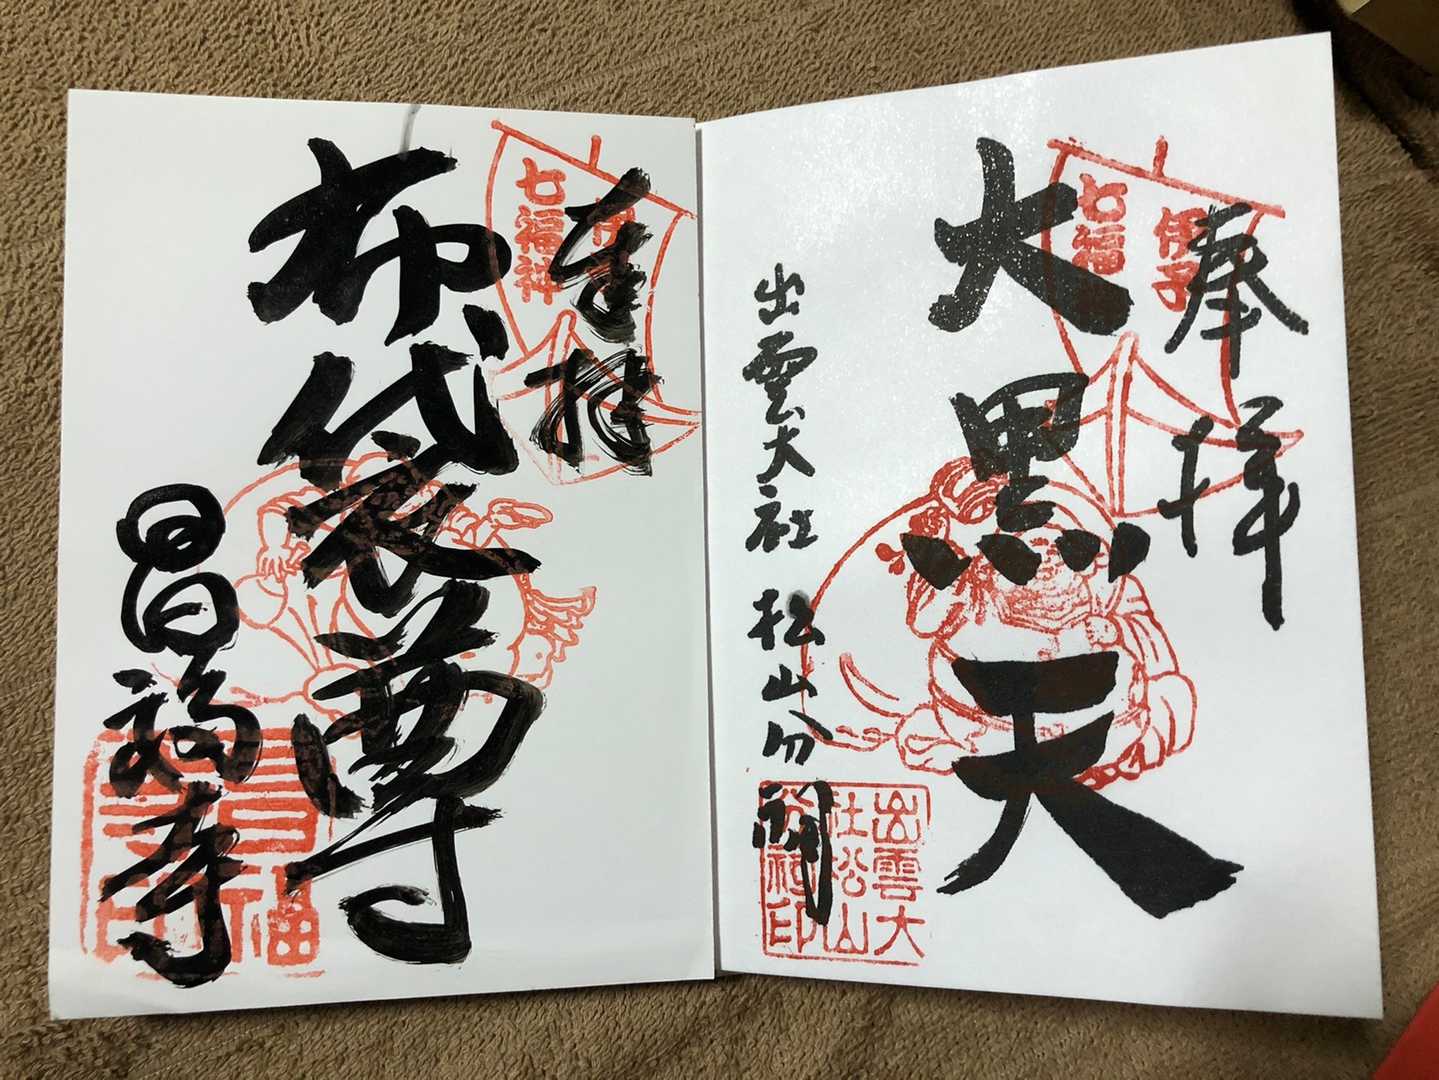 奉拝
伊予
七福
大黒天
出雲大社 松山分祠
出雲大
社松山
分祠印
奉拝
七福神
布袋尊
昌福寺
昌福
寺印